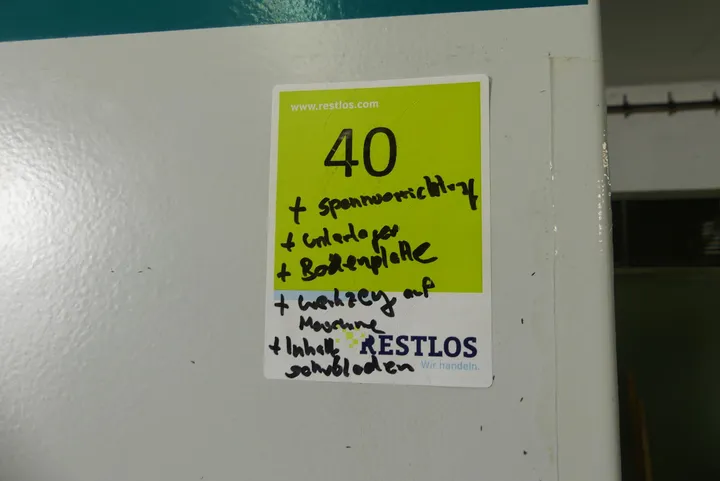 www.restlos.com
40
+ Spannvorrichtung
+ Unterlagen
+ Bodenplatte
+ Werkzeug auf
Maschine
+ Inhalt
Schubladen
RESTLOS
Wir handeln.